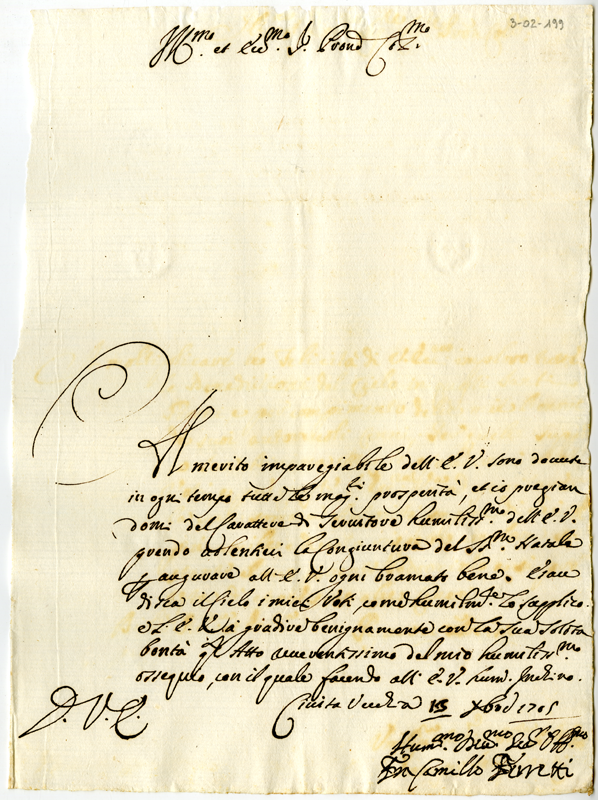 3-02-199
Ill.mo et Ecc.mo S.r Prond Col.mo
Al merito impareggiabile dell' E. V. sono dovute
in ogni tempo tutte le mag.ri prosperità, et io pregian
domi del Carattere di Servitore humiliss.mo dell' E. V.
prendo ad lentieri la Congiuntura del SS.mo Natale
p augurare all' E. V. ogni bramato bene. Esau
disca il Cielo i miei Voti, come humilm.te Lo supplico.
e L' E. V. gradire benignamente con la Sua Solita
bontà q.to Atto reverentissimo del mio humiliss.mo
ossequio, con il quale facendo all' E. V. hum. Inchino.
Civita Vecchia 13 Xbre 1705
D. V. E.
Hum.mo Dev.mo Ser.re
Fra Camillo Ferretti